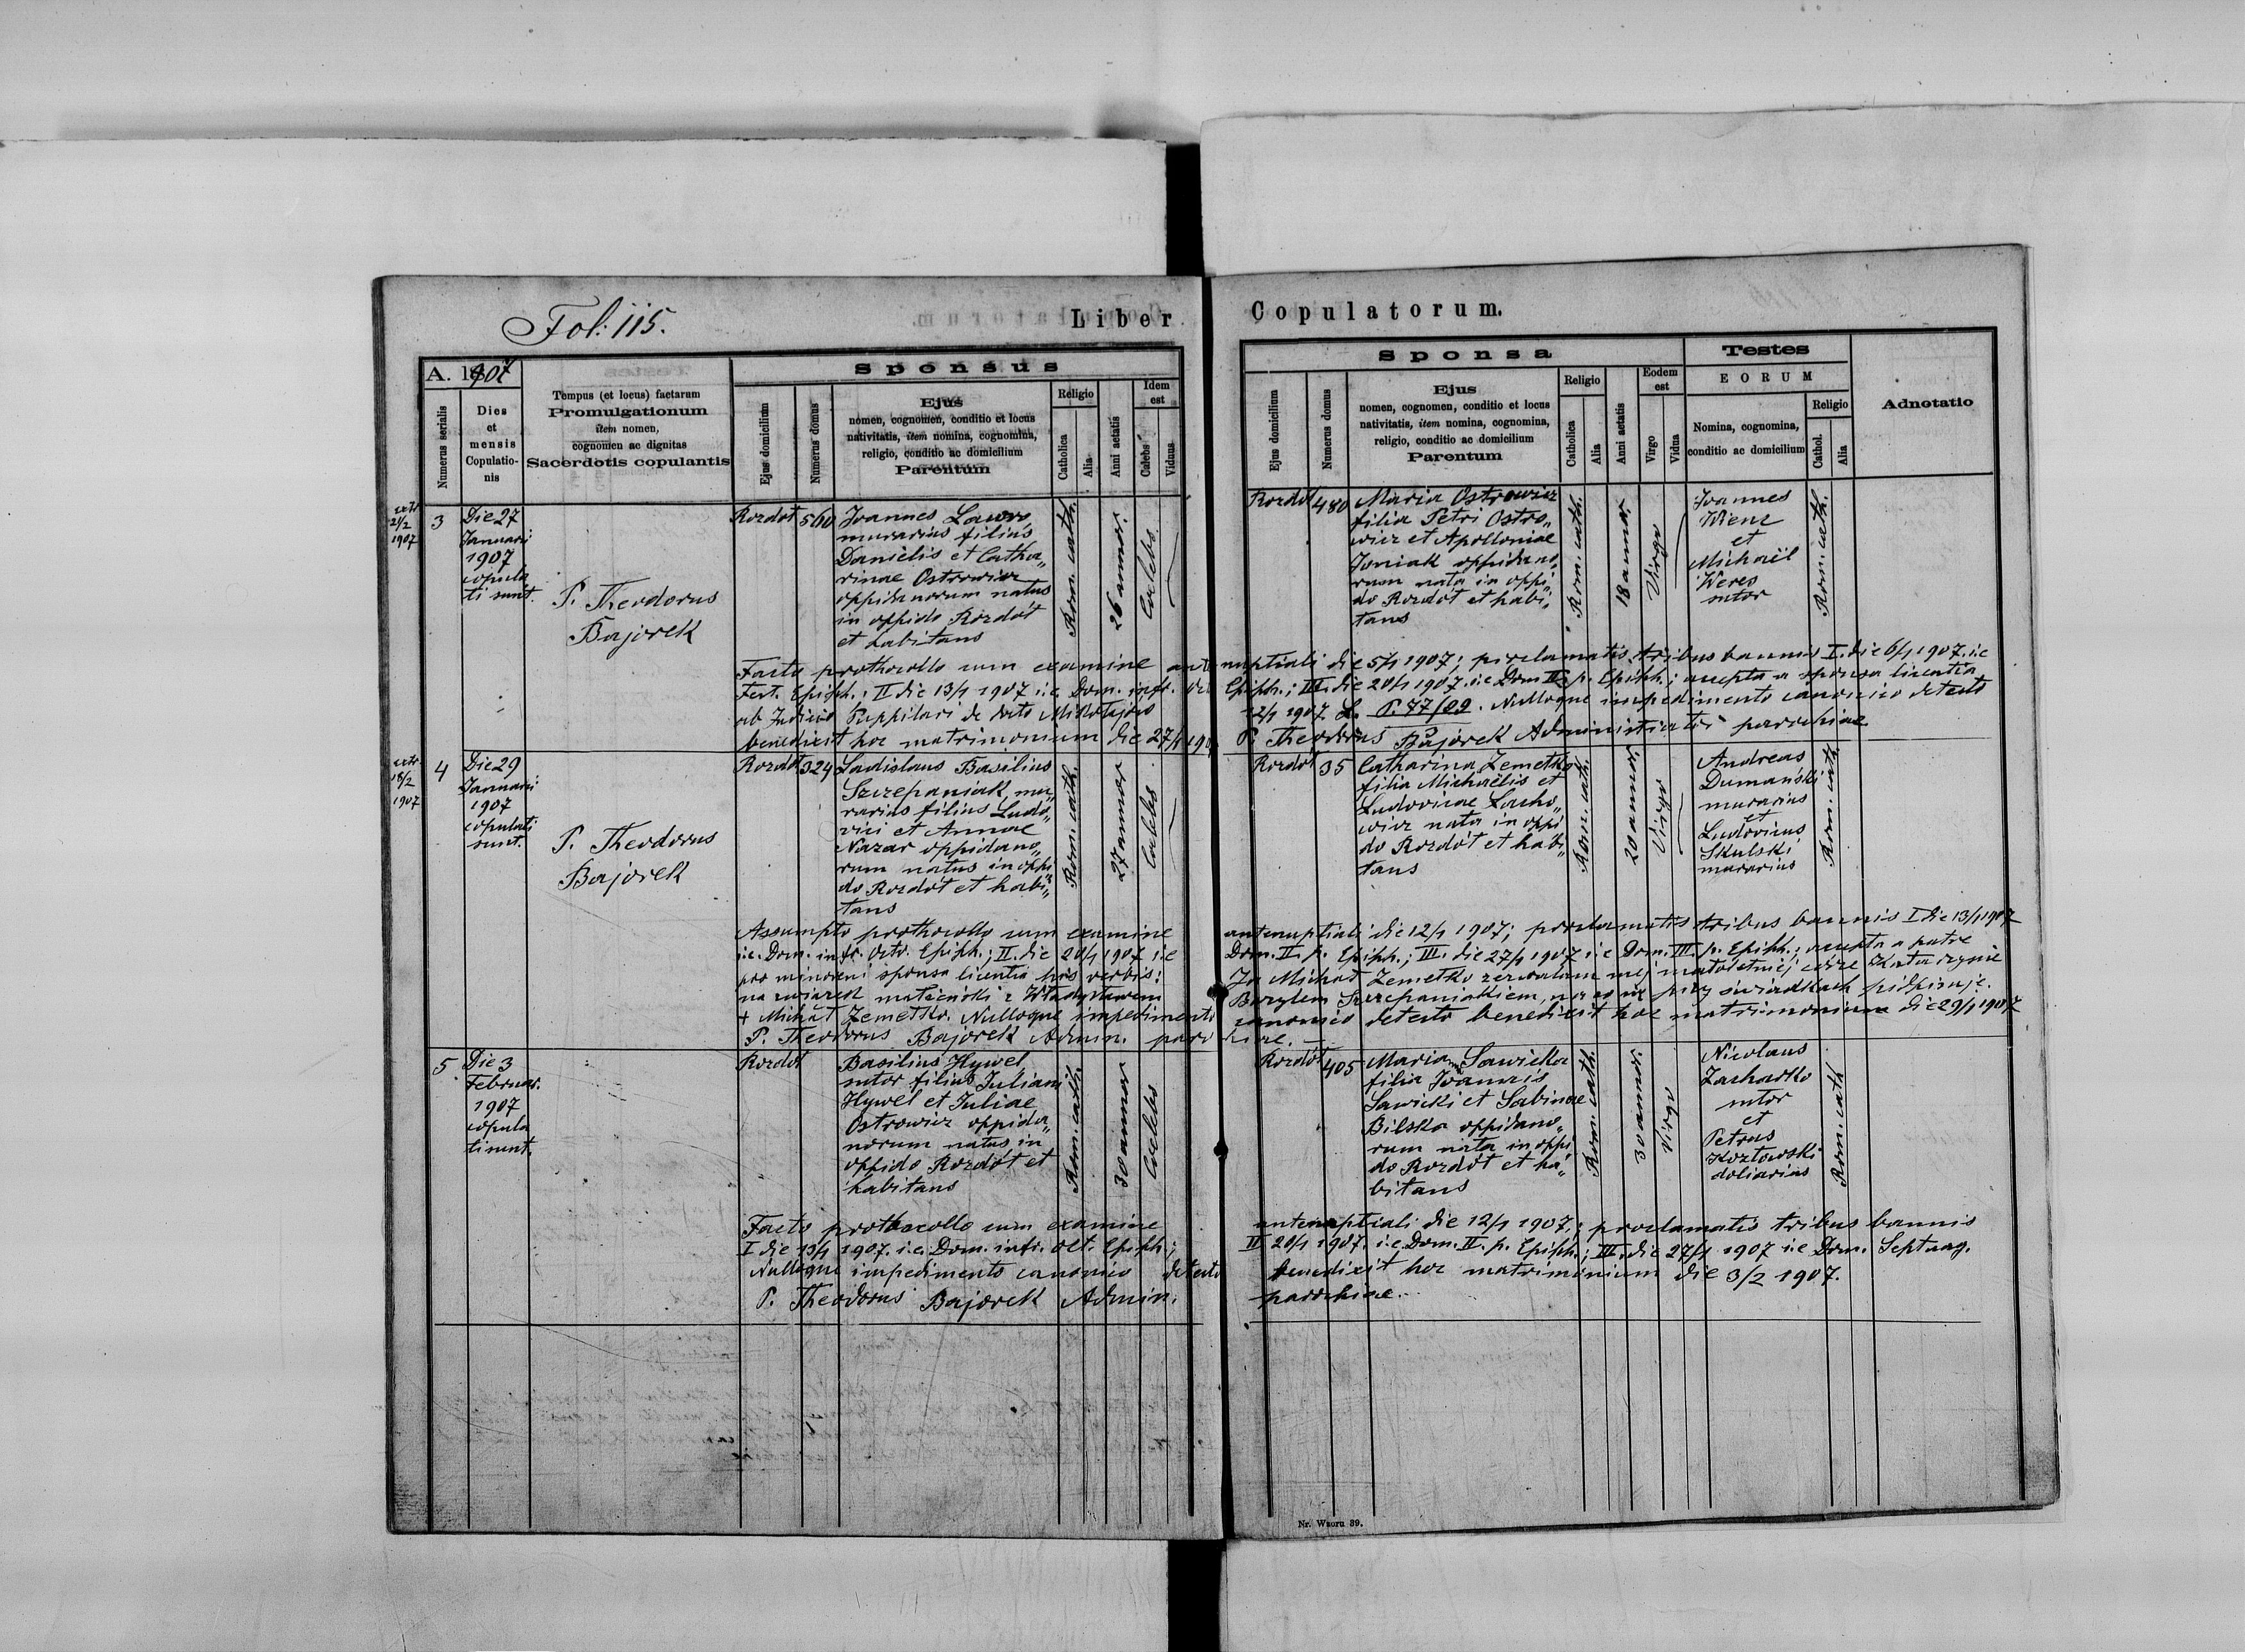 Fol: 115.
Liber Copulatorum.
A. 1907
Numerus serialis
Dies
et
mensis
Copulatio-
nis
Tempus (et locus) factarum
Promulgationum
item nomen,
cognomen ac dignitas
Sacerdotis copulantis
Sponsus
Ejus domicilium
Numerus domus
Ejus
nomen, cognomen, conditio et locus
nativitatis, item nomina, cognomina,
religio, conditio ac domicilium
Parentum
Religio
Catholica
Alia
Anni aetatis
Idem
est
Caelebs
Viduus
Sponsa
Ejus domicilium
Numerus domus
Ejus
nomen, cognomen, conditio et locus
nativitatis, item nomina, cognomina,
religio, conditio ac domicilium
Parentum
Religio
Catholica
Alia
Anni aetatis
Eodem
est
Virgo
Vidua
Testes
EORUM
Nomina, cognomina,
conditio ac domicilium
Religio
Cathol.
Alia
Adnotatio
extr.
2/2
1907
3
Die 27
Januarii
1907
copula
ti sunt.
P. Theodorus
Bajorek
Rozdół
560
Joannes Lawro
murarius filius
Danielis et Catha„
rinae Ostrowicz
oppidanorum natus
in oppido Rozdół
et habitans
Rom. cath.
26 annor.
Caelebs
Rozdół
480
Maria Ostrowicz
filia Petri Ostro„
wicz et Apolloniae
Joniak oppidano„
rum nata in oppi„
do Rozdół et habi„
tans
Rom. cath.
18 annor.
Virgo
Joannes
Wienz
et
Michaël
Weres
sutor
Rom. cath.
Facto prothocollo cum examine antenuptiali die 5/1 1907; proclamatis tribus bannis I. die 6/1 1907. i.e
Fest. Epiph.; II die 13/1 1907 i.e. Dom. infr. oct. Epiph.; III. die 20/1 1907. i.e Dom II. p. Epiph.; accepta a sponsa licentia
ab Judicio Puppilari de dato Mikołajów 12/1 1907 L. P. 77/99. Nulloque impedimento canonico detecto
benedixit hoc matrimonium die 27/1 1907 P. Theodorus Bajorek Administrator parochiae
extr.
18/2
1907
4
Die 29
Januarii
1907
copulati
sunt.
P. Theodorus
Bajorek
Rozdół
324
Ladislaus Basilius
Szczepaniak mu„
rarius filius Ludo„
vici et Annae
Nazar oppidano„
rum natus in oppi„
do Rozdół et habi„
tans
Rom. cath.
27 annor
Caelebs
Rozdół
35
Catharina Zemetko
filia Michaëlis et
Ludovicae Lacho„
wicz nata in oppi
do Rozdół et habi„
tans
Rom. cath.
20 annor.
Virgo
Andreas
Dumański
murarius
et
Ludovicus
Skulski
murarius
Rom. cath.
Assumpto prothocollo cum examine antenuptiali die 12/1 1907; proclamatis tribus bannis I die 13/1 1907
i.e. Dom. infr. Octv. Epiph.; II. die 20/1 1907 i.e Dom. II. p. Epiph.; III. die 27/1 1907 i.e Dom. III. p. Epiph.; accepta a patre
pro minoreni sponsa licentia his verbis: Ja Michał Zemetko zezwalam mej małoletniej córce Katarzynie
na związek małżeński z Władysławem Bazylem Szczepaniakiem, na co się przy świadkach podpisuję.
+ Michał Zemetko. Nulloque impedimento canonico detecto benedixit hoc matrimonium die 29/1 1907
P. Theodorus Bajorek Admin. parochiae.
5
Die 3
Februar.
1907
copula
ti sunt.
Rozdół
Basilius Hywel
sutor filius Juliani
Hywel et Juliae
Ostrowicz oppida„
norum natus in
oppido Rozdół et
habitans
Rom. cath.
30 annor
Caelebs
Rozdół
405
Maria Sawicka
filia Joannis
Sawicki et Sabinae
Bilska oppidano„
rum nata in oppi
do Rozdół et ha„
bitans
Rom. cath.
30 annor.
Virgo
Nicolaus
Zacharko
sutor
et
Petrus
Kozłowski
doliarius
Rom. cath
Facto prothocollo cum examine antenuptiali die 12/1 1907,; proclamatis tribus bannis
I die 13/1 1907. i.e. Dom. infr. oct. Epiph.; II 20/1 1907. i.e. Dom. II. p. Epiph.; III. die 27/1 1907 i.e Dom. Septuag.
Nulloque impedimento canonico detecto benedixit hoc matrimonium die 3/2 1907.
P. Theodorus Bajorek Admin. parochiae.
Nr. Wzoru 39.